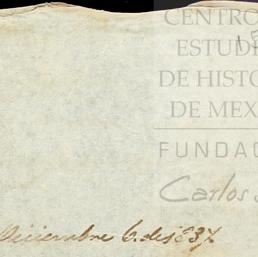 CENTRO
ESTUDI
DE HISTO
DE MEX
FUNDAC
Carlos
Diciembre 6. de 1837.